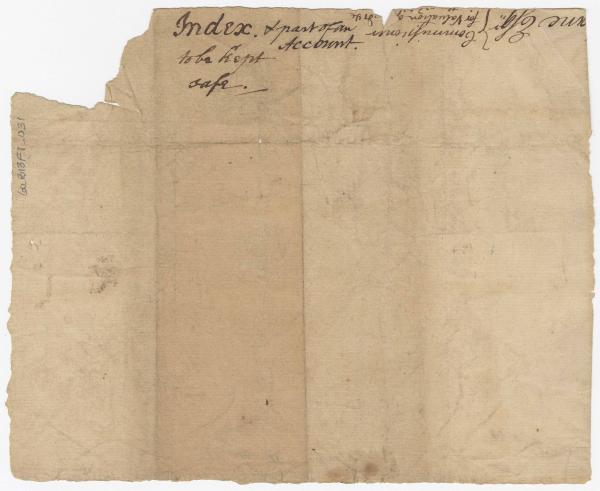 Index. & part of an
Account.
to be kept
safe.
Esqr.
Commissioner
for Valuation
B2B18F7_031